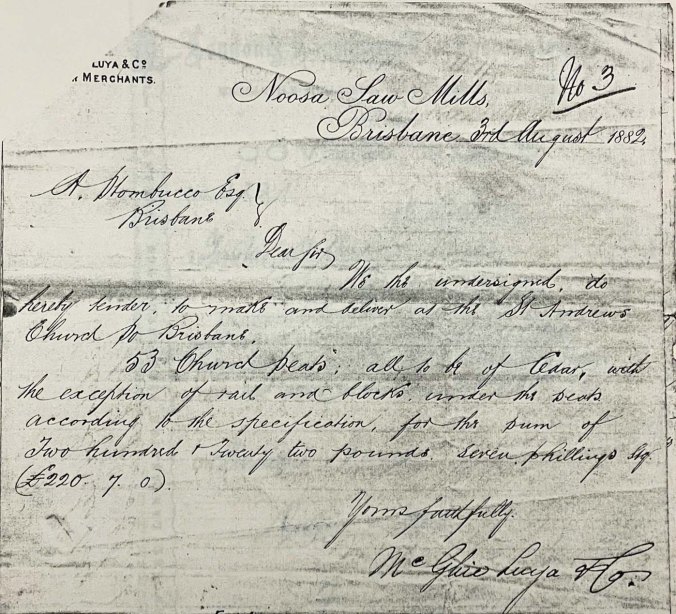 LUYA & Co
MERCHANTS.
No 3
Noosa Saw Mills,
Brisbane 3rd August 1882,
A. Stombucco Esq
Brisbane
Dear Sir
We the undersigned, do
hereby tender, to make and deliver at the St Andrews
Church So Brisbane,
53 Church Seats; all to be of Cedar, with
the exception of rail and blocks under the seats
according to the specification, for the sum of
Two hundred & Twenty two pounds Seven Shillings Stg.
(£220. 7. 0).
Yours faithfully.
McGhie Luya & Co.